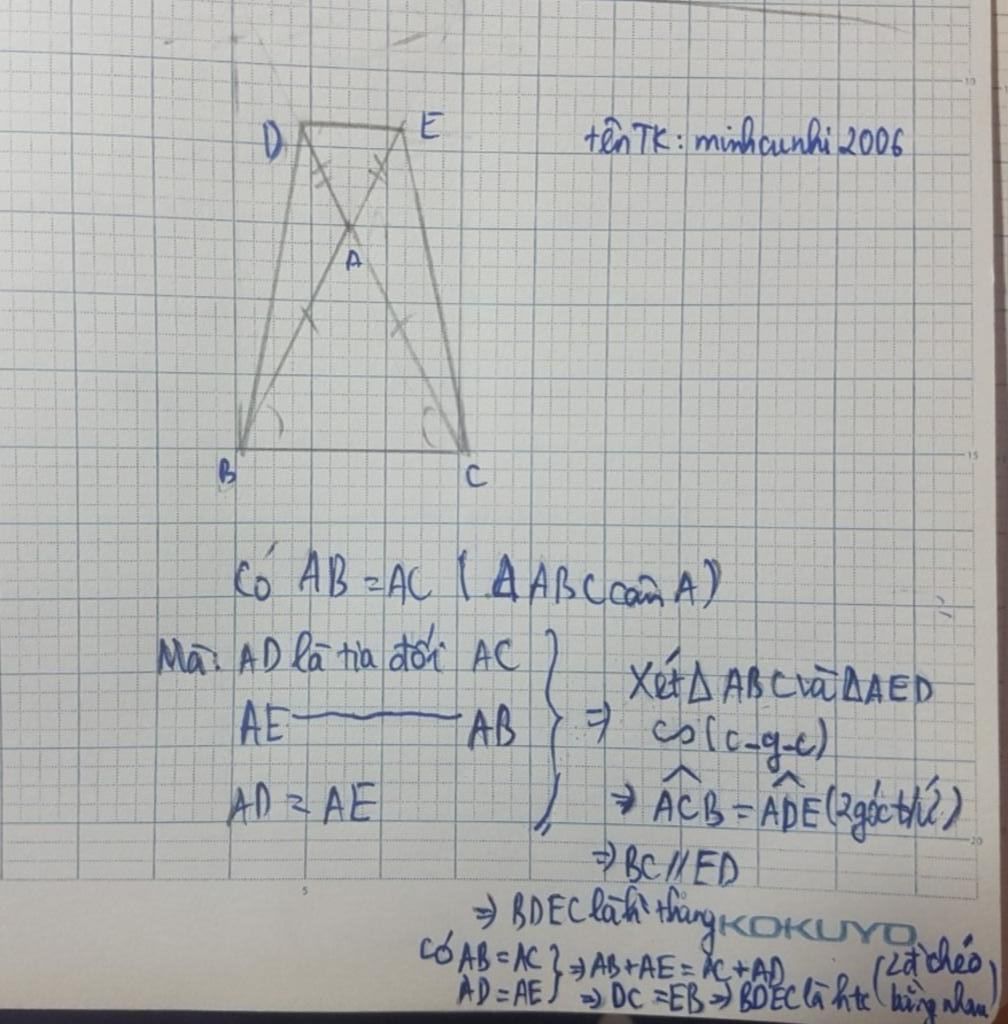 D
E
tên TK: minhcunhi 2006
A
B
C
Có AB = AC (Δ ABC cân A)
Mà: AD là tia đối AC
AE ——— AB
AD = AE
⇒ Xét Δ ABC và Δ AED
có (c-g-c)
⇒ ACB = ADE (2 góc t/ứ)
⇒ BC // ED
⇒ BDEC là h thang
KOKUYO
Có AB = AC } ⇒ AB + AE = AC + AD (2 đ chéo
AD = AE ⇒ DC = EB ⇒ BDEC là htc bằng nhau)
10
15
20
5